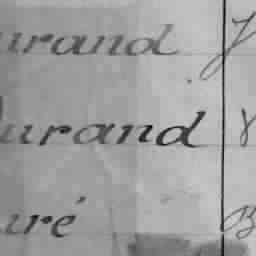 urand J
Durand
uré B